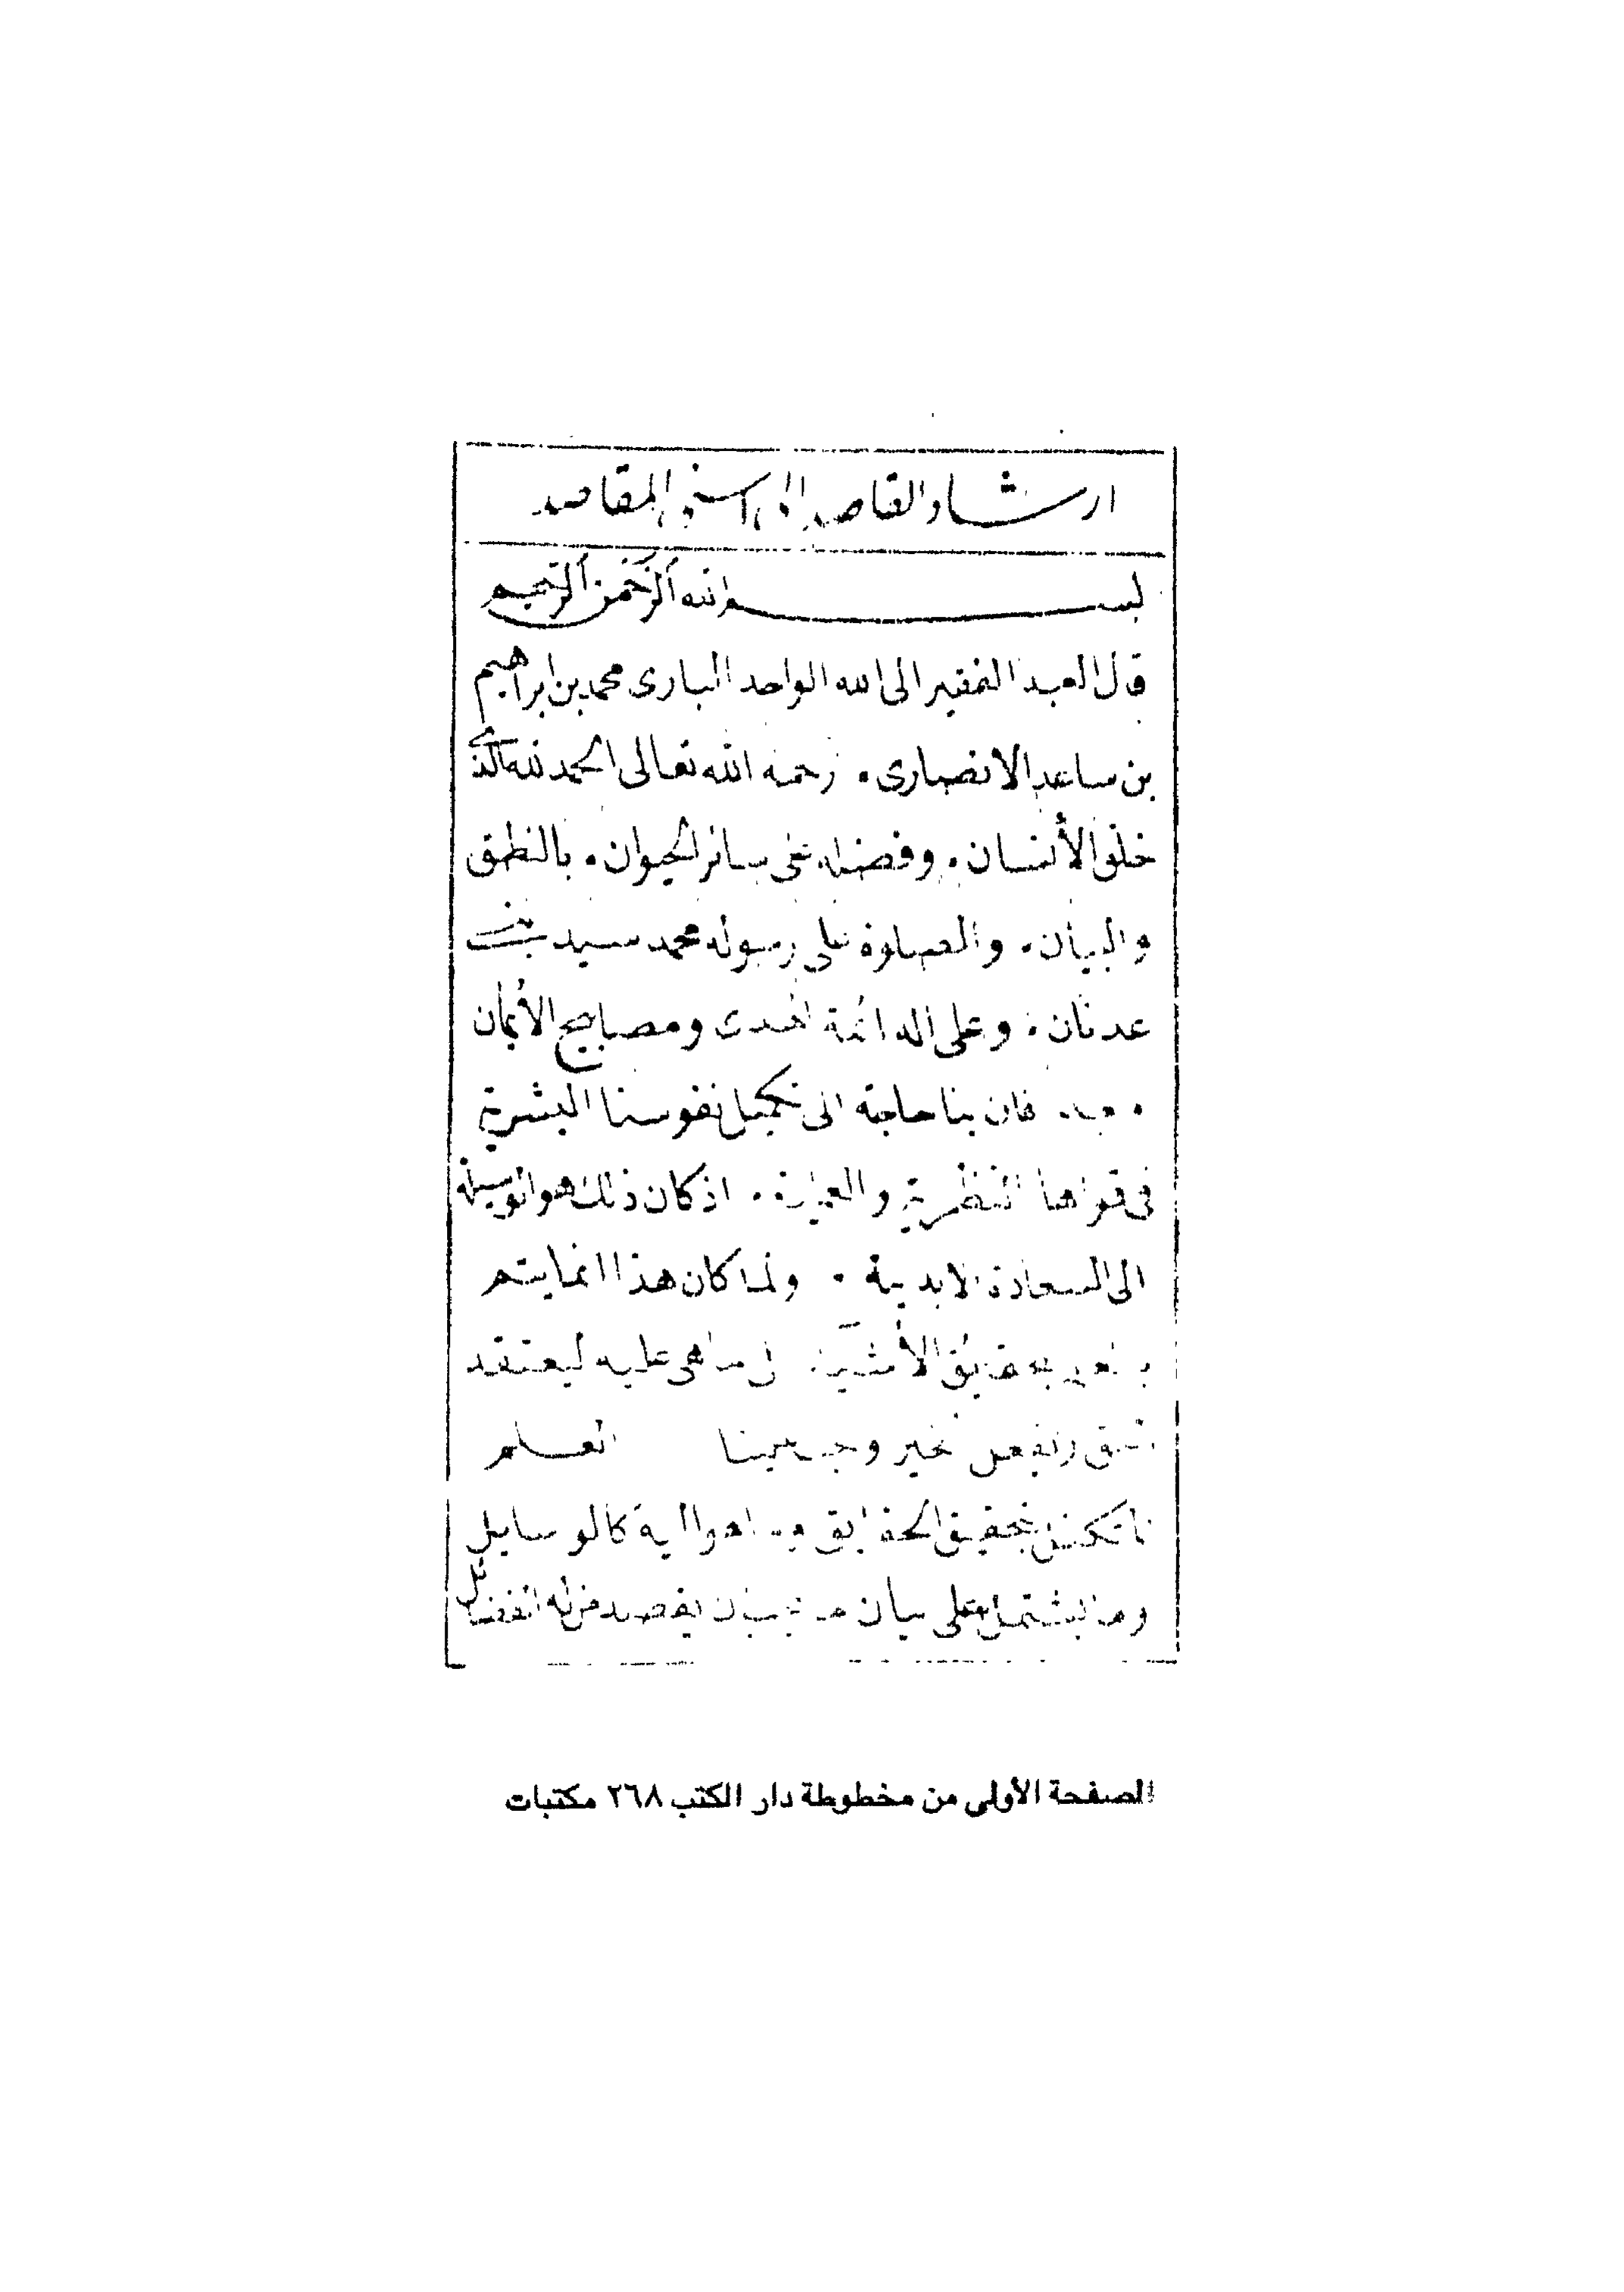 ارشاد القاصد الى اسنى المقاصد
بسم الله الرحمن الرحيم
قال العبد الفقير الى الله الواحد البارى محمد بن ابراهيم
بن ساعد الانصارى . رحمه الله تعالى الحمد لله الذى
خلق الأنسان . وفضله على سائر الحيوان . بالنطق
والبيان . والصلوة على رسوله محمد سيد
عدنان . وعلى اله ائمة الهدى ومصابيح الأيمان
وبعد . فان بنا حاجة الى تكميل نفوسنا البشرية
فى قواها النظرية والعملية . اذ كان ذلك هو الوسيلة
الى السعادة الابدية . ولما كان هذا انما يتم
الأشيآء ماهى عليه ليعتقد
الخير وجب علينا العلم
بتحقيق الحقايق وما هو الية كالوسايل
وما يشتمل على بيان ما يقصد من له الفضائل
الصفحة الأولى من مخطوطة دار الكتب ٢٦٨ مكتبات